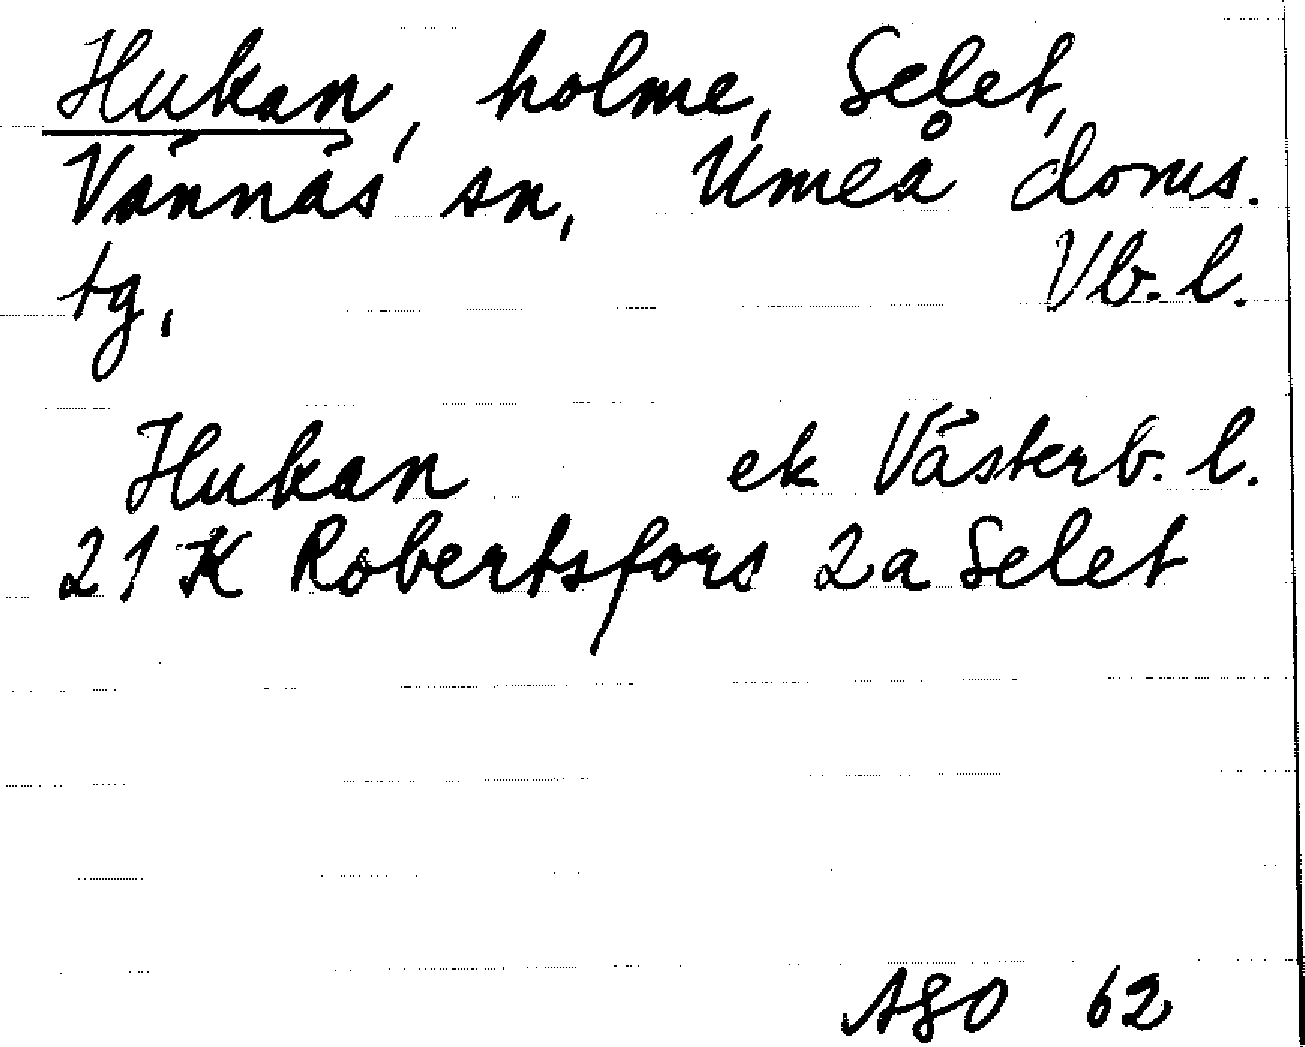 Hukan, holme, Selet,
Vännäs sn, Umeå doms.
tg, Vb. l.
Hukan ek Västerb. l.
21 K Robertsfors 2a Selet
ASO 62